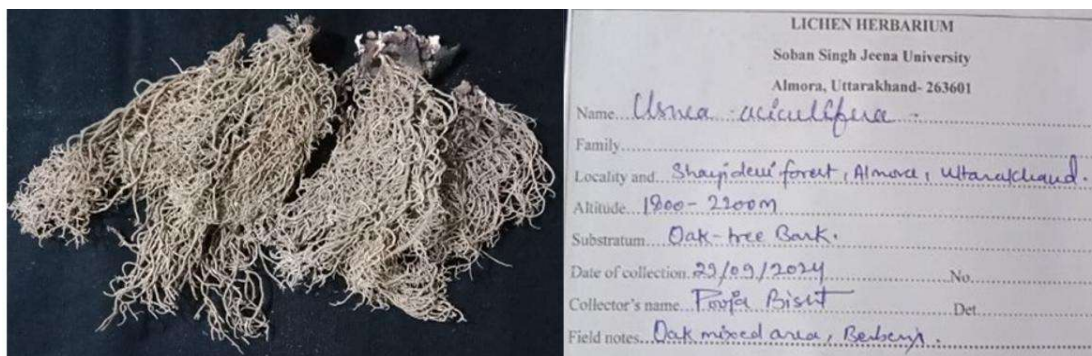 LICHEN HERBARIUM
Soban Singh Jeena University
Almora, Uttarakhand- 263601
Name Usnea aciculifera
Family
Locality and Shayidevi forest, Almora, Uttarakhand.
Altitude 1800-2200m
Substratum Oak-tree Bark.
Date of collection 29/09/2024 No.
Collector's name Pooja Bisht Det
Field notes Oak mixed area, Berberis.